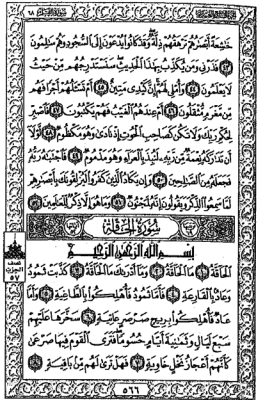 سورة القلم ٦٨
خَٰشِعَةً أَبْصَٰرُهُمْ تَرْهَقُهُمْ ذِلَّةٌ وَقَدْ كَانُوا۟ يُدْعَوْنَ إِلَى ٱلسُّجُودِ وَهُمْ سَٰلِمُونَ
٤٣ فَذَرْنِى وَمَن يُكَذِّبُ بِهَٰذَا ٱلْحَدِيثِ سَنَسْتَدْرِجُهُم مِّنْ حَيْثُ
لَا يَعْلَمُونَ ٤٤ وَأُمْلِى لَهُمْ إِنَّ كَيْدِى مَتِينٌ ٤٥ أَمْ تَسْـَٔلُهُمْ أَجْرًا فَهُم
مِّن مَّغْرَمٍ مُّثْقَلُونَ ٤٦ أَمْ عِندَهُمُ ٱلْغَيْبُ فَهُمْ يَكْتُبُونَ ٤٧ فَٱصْبِرْ
لِحُكْمِ رَبِّكَ وَلَا تَكُن كَصَاحِبِ ٱلْحُوتِ إِذْ نَادَىٰ وَهُوَ مَكْظُومٌ ٤٨ لَّوْلَآ
أَن تَدَٰرَكَهُۥ نِعْمَةٌ مِّن رَّبِّهِۦ لَنُبِذَ بِٱلْعَرَآءِ وَهُوَ مَذْمُومٌ ٤٩ فَٱجْتَبَٰهُ رَبُّهُۥ
فَجَعَلَهُۥ مِنَ ٱلصَّٰلِحِينَ ٥٠ وَإِن يَكَادُ ٱلَّذِينَ كَفَرُوا۟ لَيُزْلِقُونَكَ بِأَبْصَٰرِهِمْ
لَمَّا سَمِعُوا۟ ٱلذِّكْرَ وَيَقُولُونَ إِنَّهُۥ لَمَجْنُونٌ ٥١ وَمَا هُوَ إِلَّا ذِكْرٌ لِّلْعَٰلَمِينَ ٥٢
سُورَةُ الحَاقَّةِ
بِسْمِ ٱللَّهِ ٱلرَّحْمَٰنِ ٱلرَّحِيمِ
ٱلْحَآقَّةُ ١ مَا ٱلْحَآقَّةُ ٢ وَمَآ أَدْرَىٰكَ مَا ٱلْحَآقَّةُ ٣ كَذَّبَتْ ثَمُودُ
وَعَادٌۢ بِٱلْقَارِعَةِ ٤ فَأَمَّا ثَمُودُ فَأُهْلِكُوا۟ بِٱلطَّاغِيَةِ ٥ وَأَمَّا
عَادٌ فَأُهْلِكُوا۟ بِرِيحٍ صَرْصَرٍ عَاتِيَةٍ ٦ سَخَّرَهَا عَلَيْهِمْ
سَبْعَ لَيَالٍ وَثَمَٰنِيَةَ أَيَّامٍ حُسُومًا فَتَرَى ٱلْقَوْمَ فِيهَا صَرْعَىٰ
كَأَنَّهُمْ أَعْجَازُ نَخْلٍ خَاوِيَةٍ ٧ فَهَلْ تَرَىٰ لَهُم مِّنۢ بَاقِيَةٍ ٨
نصف
الحزب
٥٧
٥٦٦